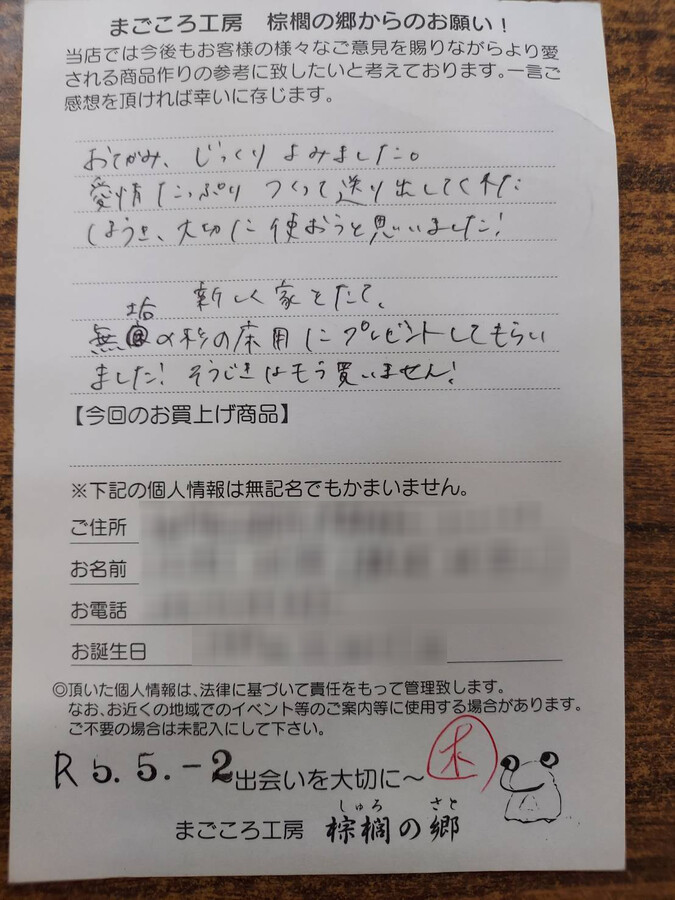 まごころ工房　棕櫚の郷からのお願い！
当店では今後もお客様の様々なご意見を賜りながらより愛
される商品作りの参考に致したいと考えております。一言ご
感想を頂ければ幸いに存じます。
おてがみ、じっくりよみました。
愛情たっぷり つくって送り出してくれた
ほうき、大切に使おうと思いました！
新しく家をたて、
無垢の杉の床用にプレゼントしてもらい
ました！そうじきはもう買いません！
【今回のお買上げ商品】
※下記の個人情報は無記名でもかまいません。
ご住所
お名前
お電話
お誕生日
◎頂いた個人情報は、法律に基づいて責任をもって管理致します。
なお、お近くの地域でのイベント等のご案内等に使用する場合があります。
ご不要の場合は未記入にして下さい。
R 5. 5. -2 出会いを大切に～
しゅろ　さと
まごころ工房　棕櫚の郷